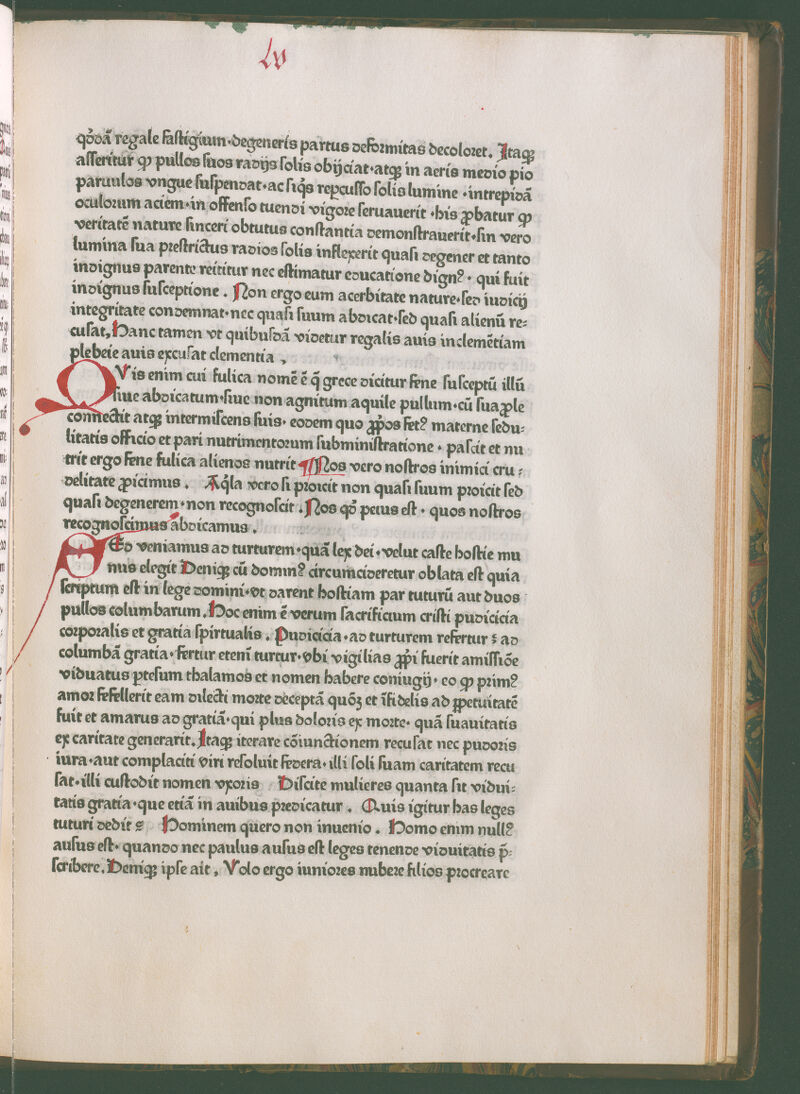 lv
qd̓dā regale fastigium·degeneris partus deformitas decoloret. Itaqꝫ
asseritur ꝙ pullos suos radijs solis obijciat·atqꝫ in aeris medio pio
paruulos vngue suspendat·ac siq̓s repcusso solis lumine·intrepidā
oculorum aciem·in offenso tuendi vigore seruauerit·his ꝓbatur ꝙ
veritatē nature sinceri obtutus constantia demonstrauerit·sin vero
lumina sua prestrictus radios solis inflexerit quasi degener et tanto
indignus parente reititur nec estimatur educatione dignꝰ· qui fuit
indignus susceptione. Non ergo eum acerbitate nature·sed iudicij
integritate condemnat·nec quasi suum abdicat·sed quasi alienū re⸗
cusat, Hanc tamen vt quibusdā videtur regalis auis inclemētiam
plebeie auis excusat clementia,
QVis enim cui fulica nomē ē q̄ grece dicitur fene susceptū illū
siue abdicatum·siue non agnitum aquile pullum·cū sua ꝓle
connectit atqꝫ intermiscens suis· eodem quo ꝓp̓os fetꝰ materne sedu⸗
litatis officio et pari nutrimentorum subministratione· pascit et nu
trit ergo fene fulica alienos nutrit ¶Nos vero nostros inimici cru⸗
delitate ꝓicimus. Aq̓la vero si proicit non quasi suum proicit sed
quasi degenerem·non recognoscit. Nos qd̓ peius est· quos nostros
recognoscimus abdicamus.
SEd veniamus ad turturem·quā lex dei·velut caste hostie mu
nus elegit Deniqꝫ cū dominꝰ circumcideretur oblata est quia
scriptum est in lege domini·vt darent hostiam par tuturū aut duos
pullos columbarum. Hoc enim ē verum sacrificium cristi pudicicia
corporalis et gratia spiritualis. Pudicicia·ad turturem refertur ⁊ ad
columbā gratia·fertur etenī turtur·vbi vigilias ꝓp̓i fuerit amissiōe
viduatus ꝑtesum thalamos et nomen habere coniugij·eo ꝙ primꝰ
amor fefellerit eam dilecti morte deceptā quōꝫ et īfidelis ad ꝑpetuitatē
fuit et amarus ad gratiā·qui plus doloris ex morte· quā suauitatis
ex caritate generarit. Itaqꝫ iterare cōiunctionem recusat nec pudoris
iura·aut complaciti viri resoluit federa·illi soli suam caritatem recu
sat·illi custodit nomen vxoris Discite mulieres quanta sit vidui⸗
tatis gratia·que etiā in auibus predicatur. Quis igitur has leges
tuturi dedit Hominem quero non inuenio. Homo enim nullꝰ
ausus est· quando nec paulus ausus est leges tenende viduitatis p̄⸗
scribere. Deniqꝫ ipse ait, Volo ergo iuniores nubere filios procreare